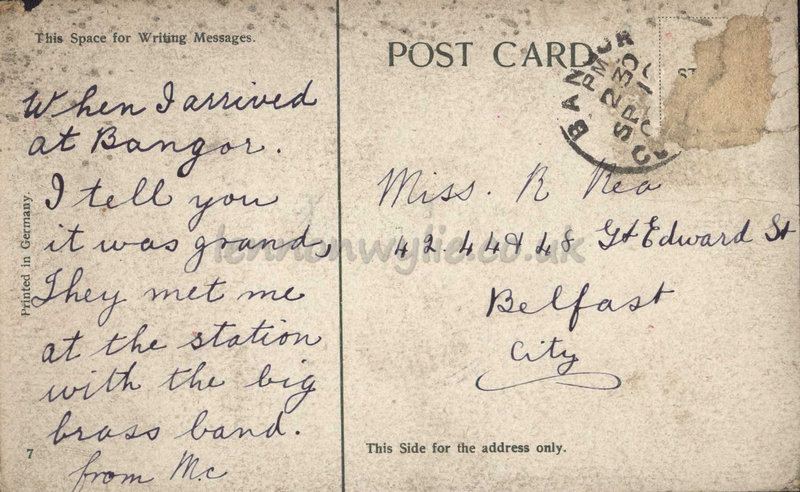 This Space for Writing Messages.
When I arrived
at Bangor.
I tell you
it was grand,
They met me
at the station
with the big
brass band.
from Mc
7
Printed in Germany.
POST CARD
BANGOR
PM
2 30
SP
Miss. R Rea
42 44 & 48 Gt Edward St
Belfast
City
This Side for the address only.
lennonwylie.co.uk